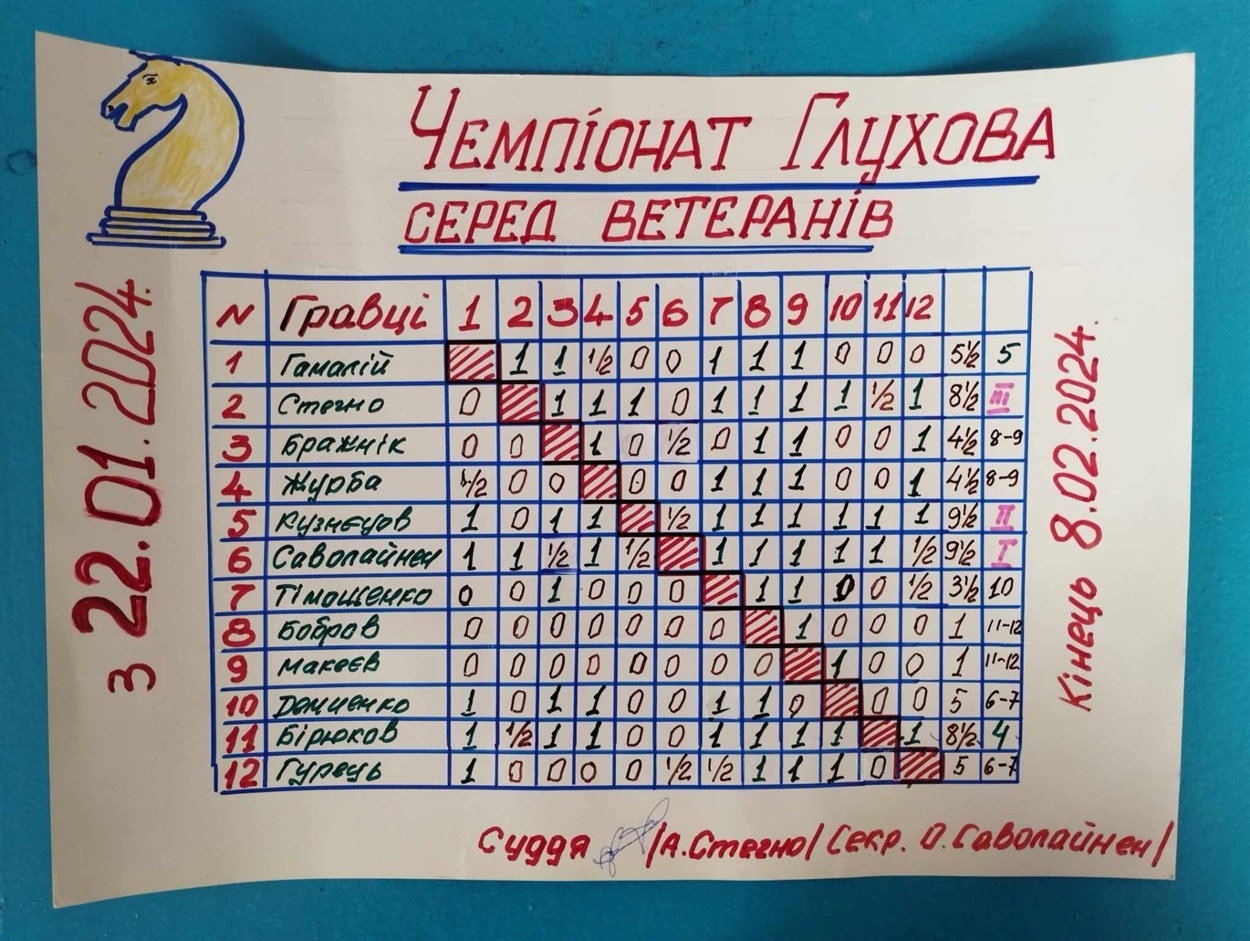 Чемпіонат Глухова
серед ветеранів
з 22.01.2024.
N Гравці 1 2 3 4 5 6 7 8 9 10 11 12
1 Гамалій 1 1 1/2 0 0 1 1 1 0 0 0 5½ 5
2 Стегно 0 1 1 1 0 1 1 1 1 1/2 1 8½ III
3 Бражнік 0 0 1 0 1/2 0 1 1 0 0 1 4½ 8-9
4 Журба 1/2 0 0 0 0 1 1 1 0 0 1 4½ 8-9
5 Кузнєцов 1 0 1 1 1/2 1 1 1 1 1 1 9½ II
6 Саволайнен 1 1 1/2 1 1/2 1 1 1 1 1 1/2 9½ I
7 Тімошенко 0 0 1 0 0 0 1 1 0 0 1/2 3½ 10
8 Бобров 0 0 0 0 0 0 0 1 0 0 0 1 11-12
9 Макеєв 0 0 0 0 0 0 0 0 1 0 0 1 11-12
10 Демченко 1 0 1 1 0 0 1 1 0 0 0 5 6-7
11 Бірюков 1 1/2 1 1 0 0 1 1 1 1 1 8½ 4
12 Гурець 1 0 0 0 0 1/2 1/2 1 1 1 0 5 6-7
Кінець 8.02.2024.
Суддя /А.Стегно/ Секр. О.Саволайнен/